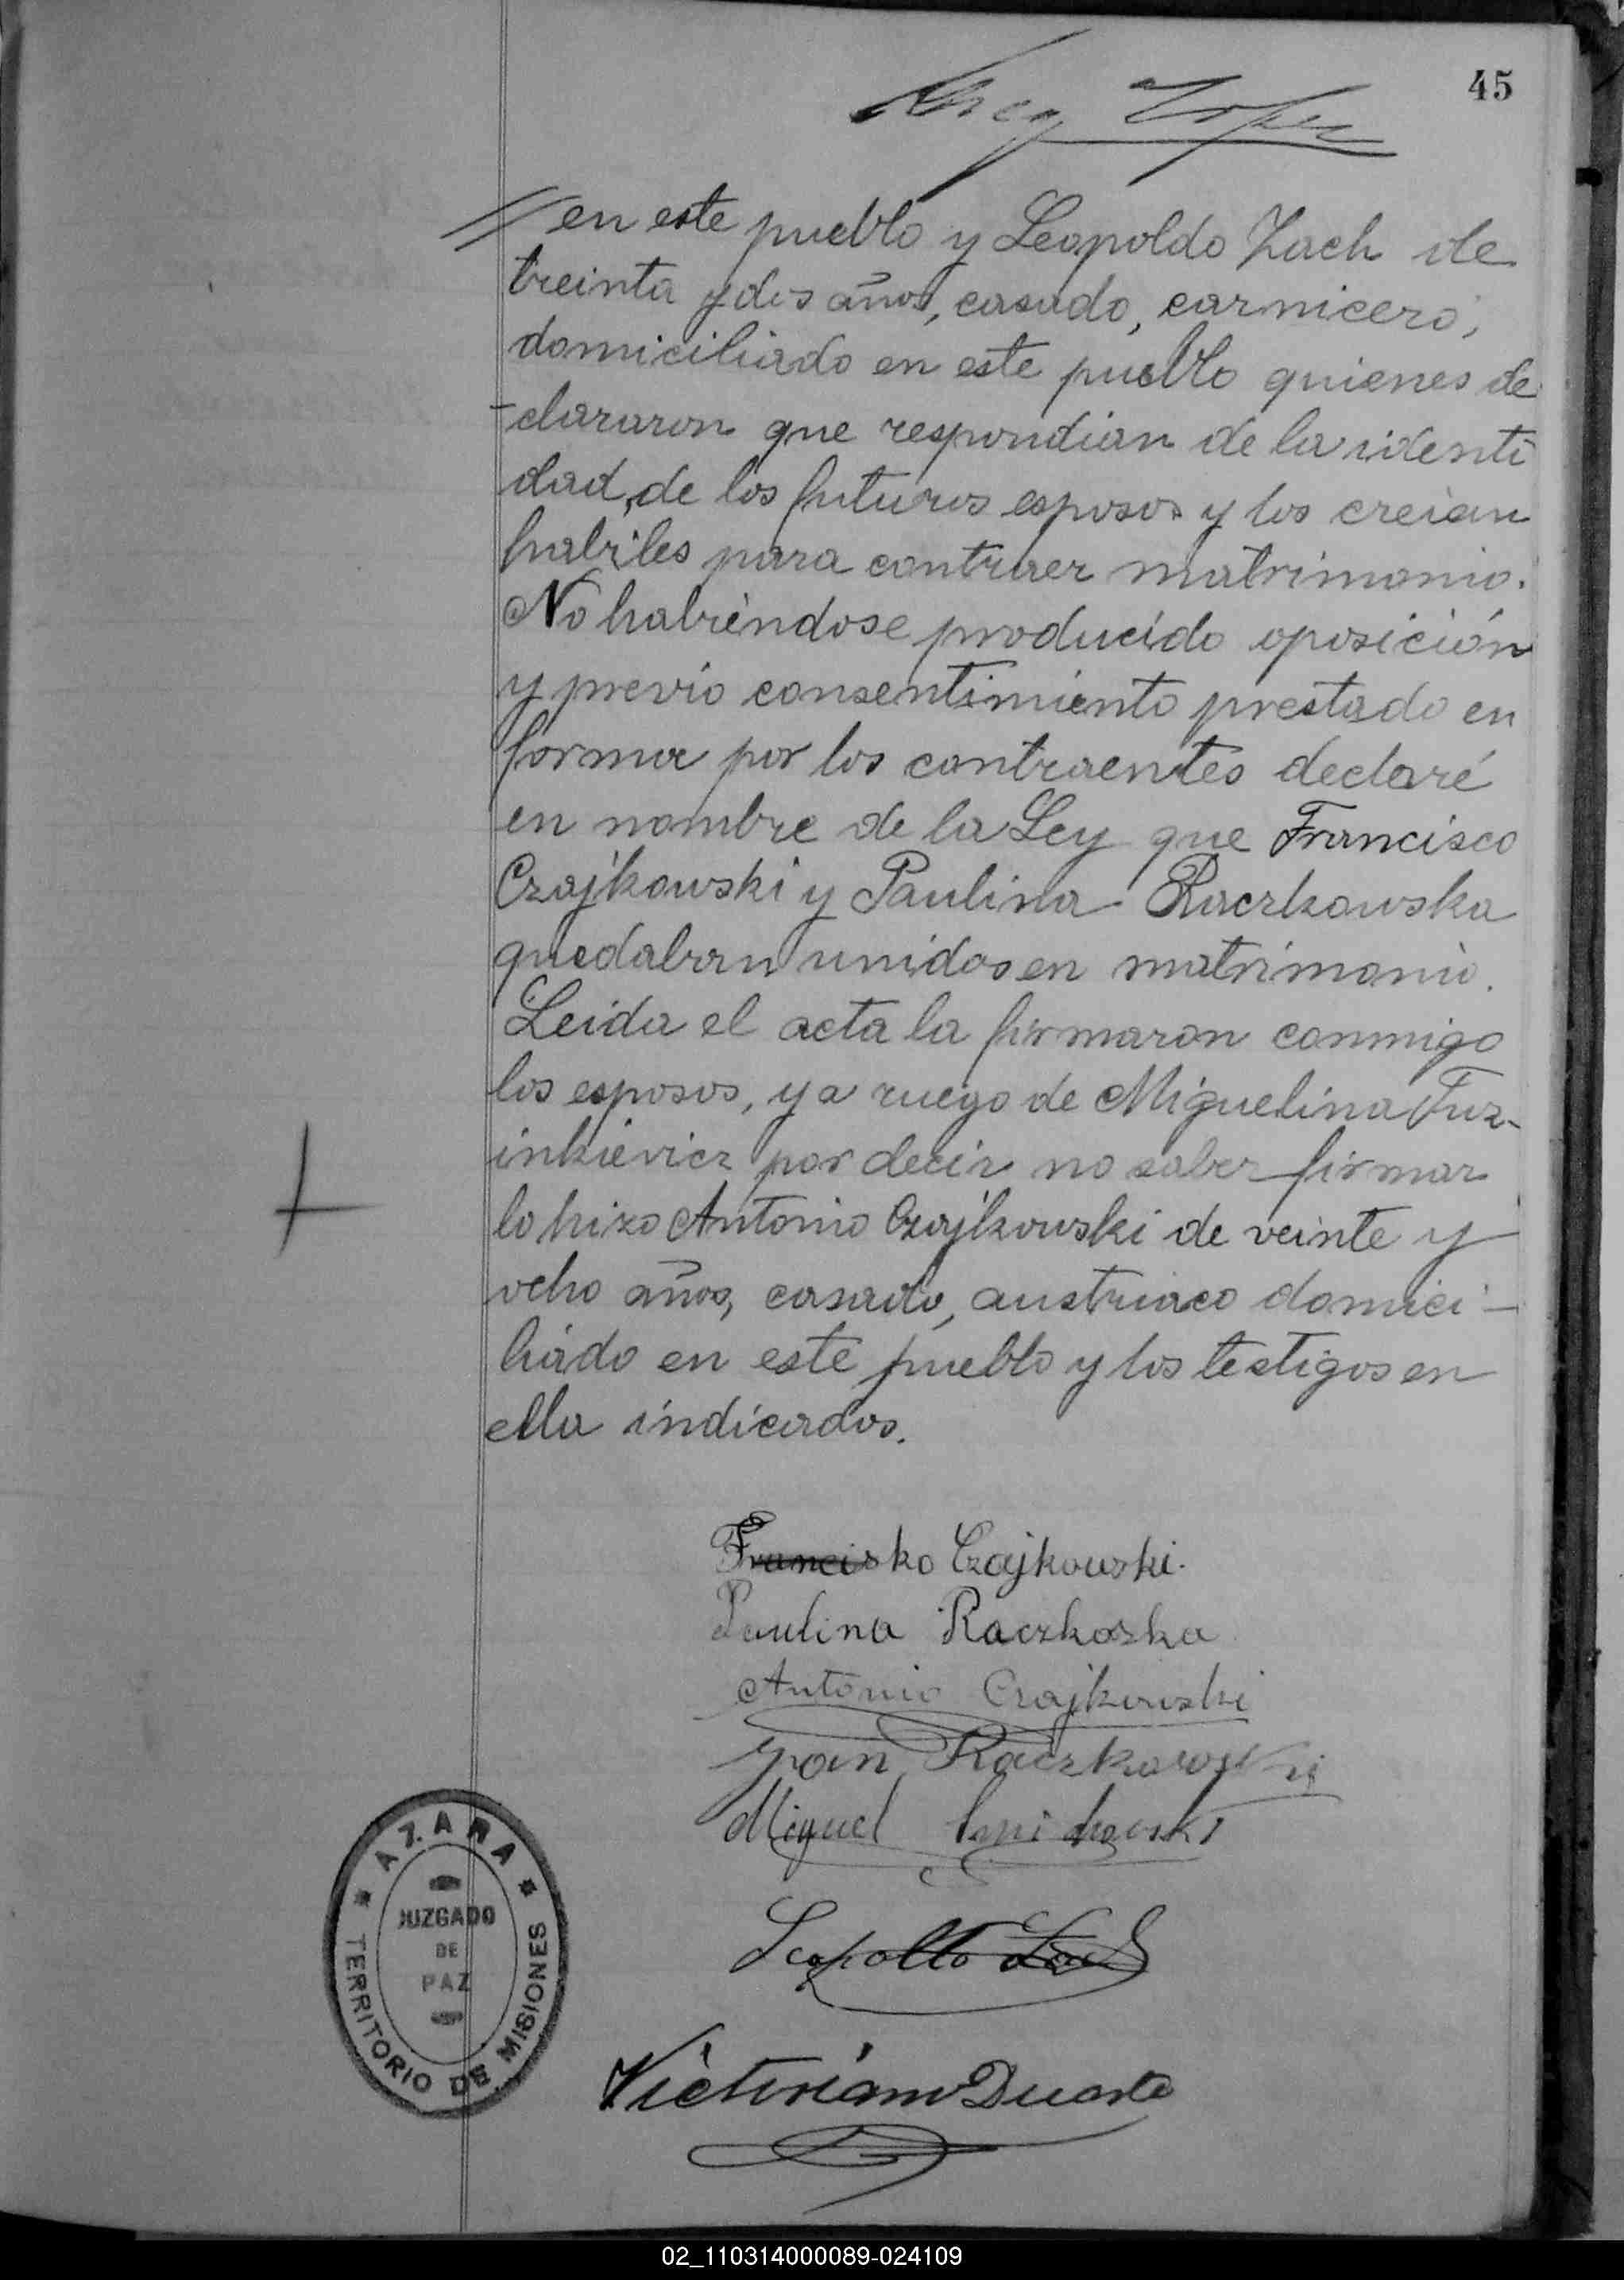 45
Lopez
// en este pueblo y Leopoldo Zach de
treinta y dos años, casado, carnicero,
domiciliado en este pueblo quienes de
-clararon que respondian de la identi
dad, de los futuros esposos y los creian
habiles para contraer matrimonio.
No habiéndose producido oposición
y previo consentimiento prestado en
forma por los contraentes declaré
en nombre de la Ley que Francisco
Czajkowski y Paulina Raczkowska
quedaban unidos en matrimonio.
Leida el acta la firmaron conmigo
los esposos, y a ruego de Miguelina Tuz-
inkievicz por decir no saber firmar
lo hizo Antonio Czajkowski de veinte y
ocho años, casado, austriaco domici-
liado en este pueblo y los testigos en
ella indicados.
Francisko Czajkowski.
Paulina Raczkoska
Antonio Czajkowski
Jan Raczkowski
Miguel
Leopolto Zach
Victoriano Duarte
* AZARA *
JUZGADO
DE
PAZ
TERRITORIO DE MISIONES
02_110314000089-024109